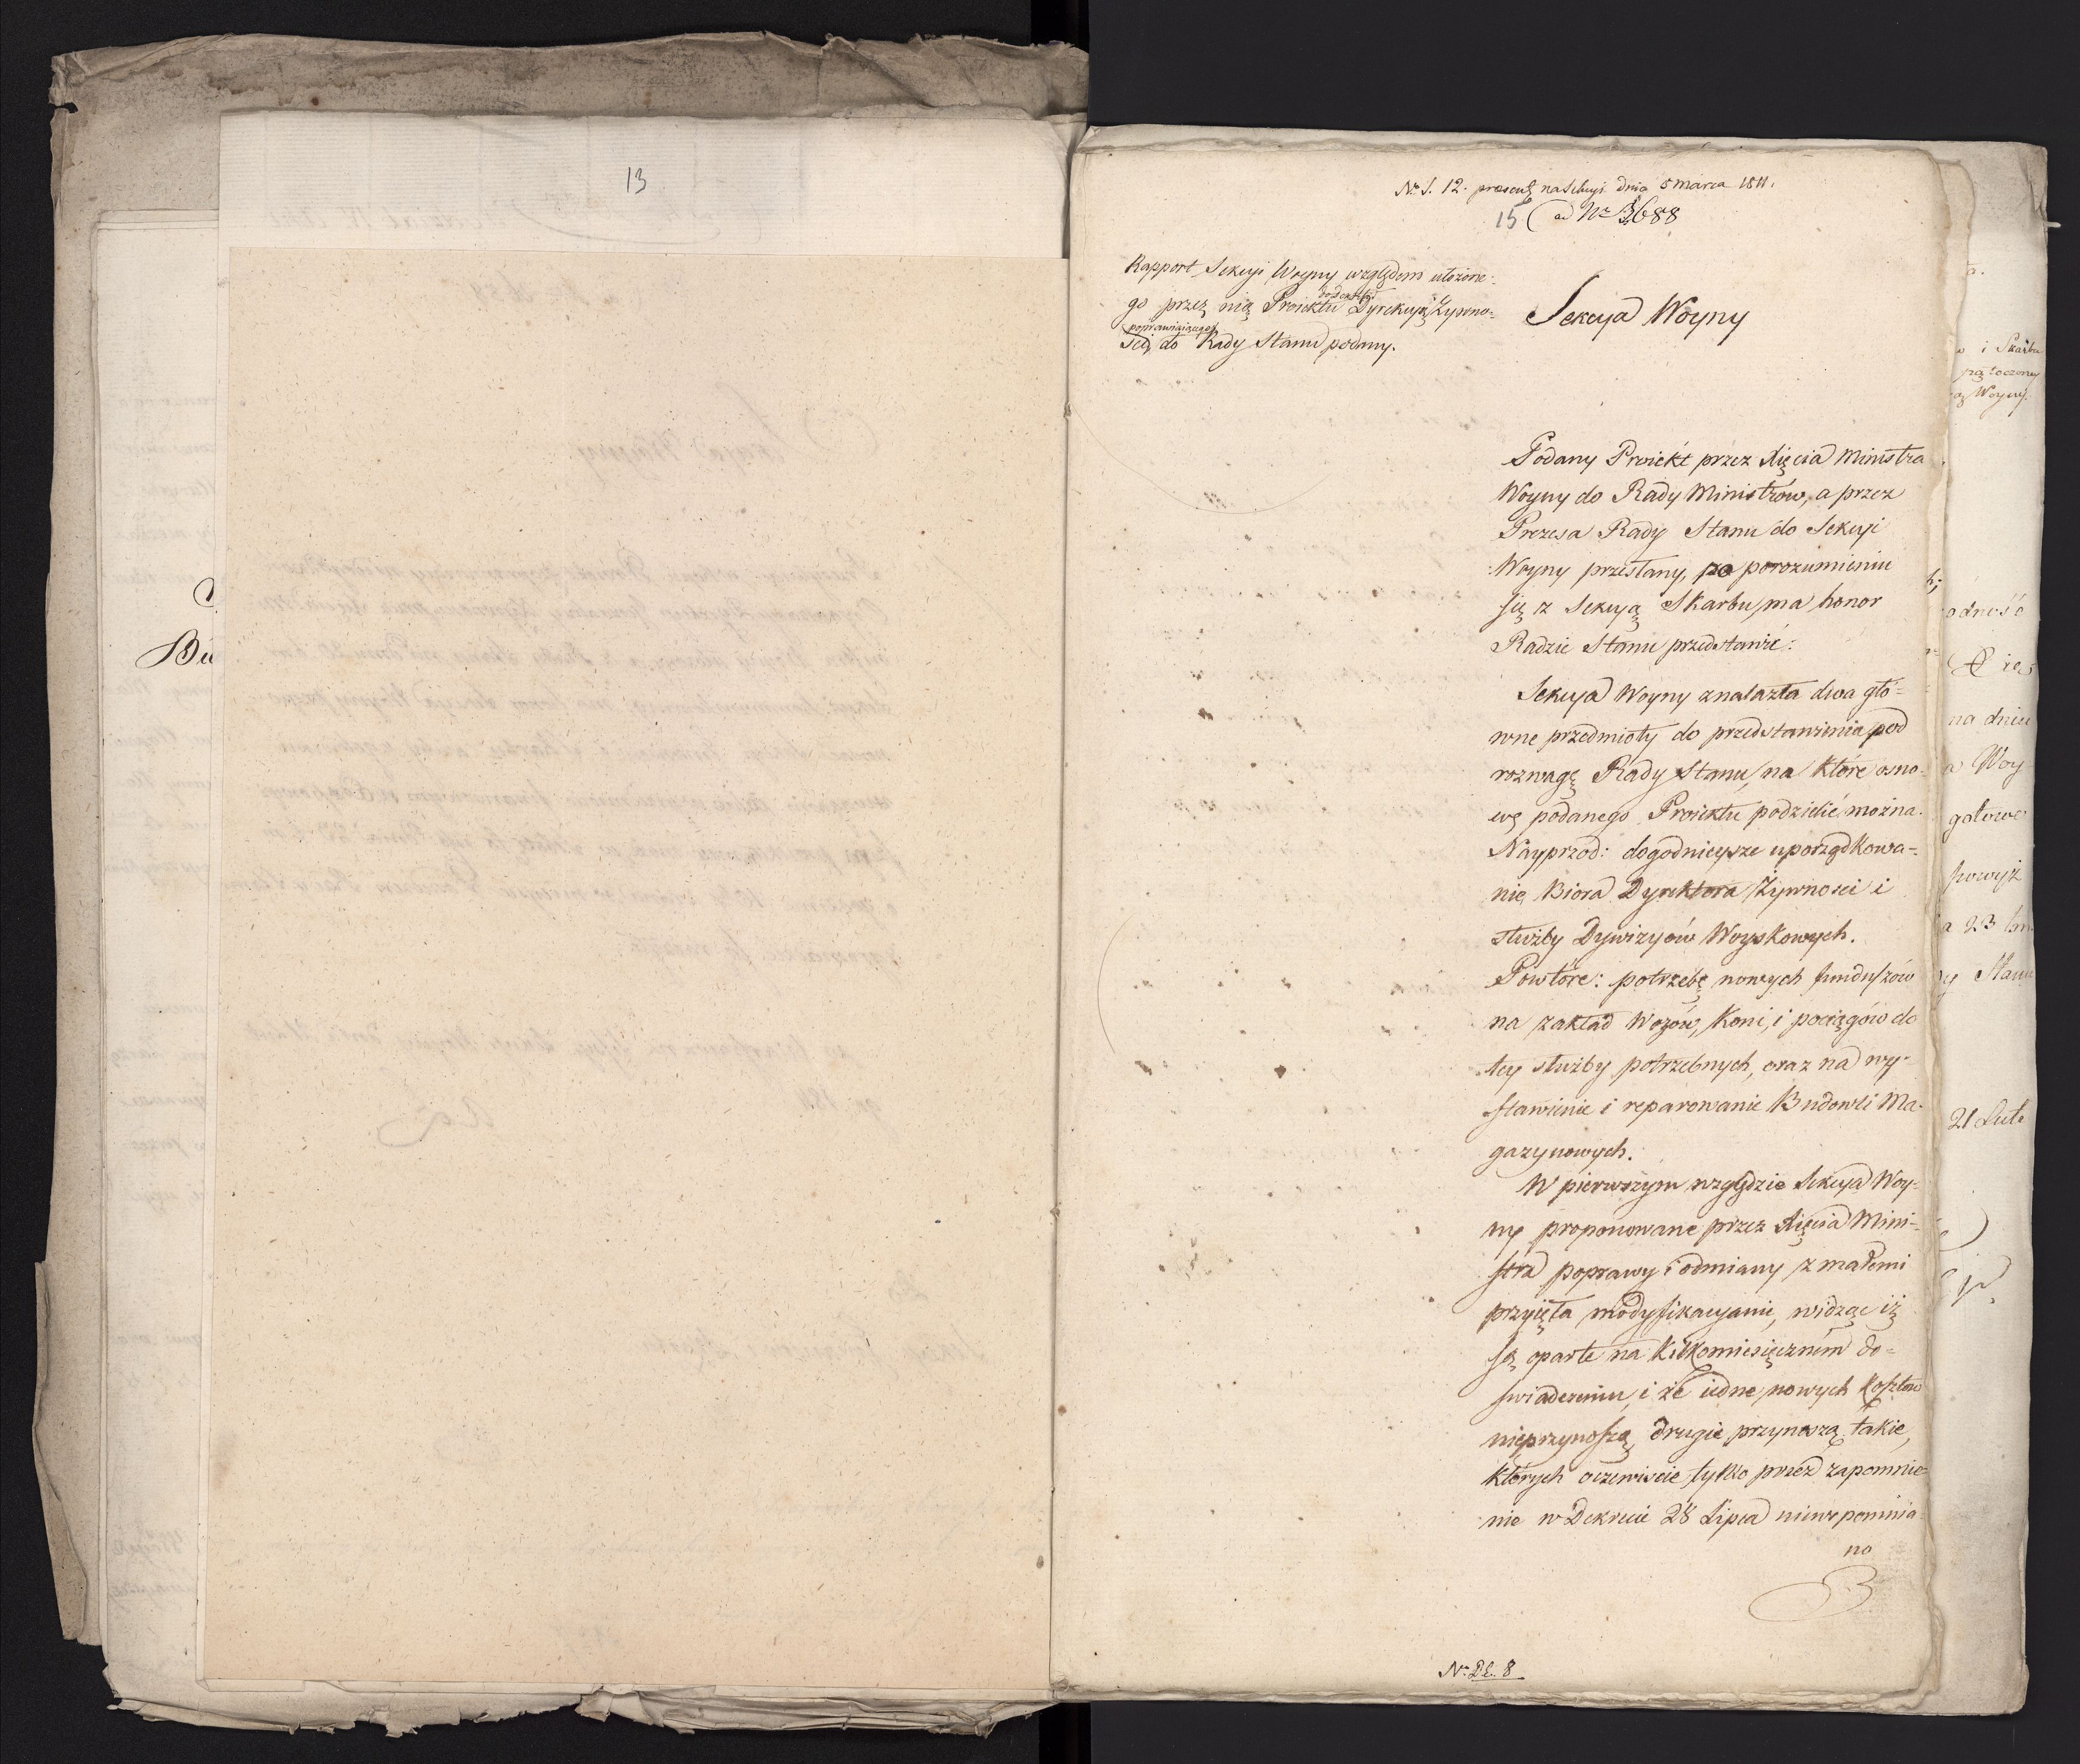 13
Nr. S. 12. praesent na Sekcyi dnia 5 Marca 1811.
15 ad Nr 3688
Rapport Sekcyi Woyny względem ułożone-
go przez nią Proiektu Dyrekcyą Żywno-
poprawiaiącego
ści, do Rady Stanu podany.
Sekcya Woyny
Podany Proiekt przez Xięcia Ministra
Woyny do Rady Ministrów, a przez
Prezesa Rady Stanu do Sekcyi
Woyny przesłany, po porozumieniu
się z Sekcyą Skarbu, ma honor
Radzie Stanu przedstawić:
Sekcya Woyny znalazła dwa głó-
wne przedmioty do przedstawienia pod
rozwagę Rady Stanu, na które osno-
wę podanego Proiektu podzielić można.
Nayprzod: dogodnieysze uporządkowa-
nie Biora Dyrektora Żywności i
służby Dywizyów Woyskowych.
Powtóre: potrzebę nowych funduszów
na zakład Wozów, Koni, i pociągów do
tey służby potrzebnych, oraz na wy-
stawienie i reparowanie Budowli Ma-
gazynowych.
W pierwszym względzie Sekcya Woy-
ny proponowane przez Xięcia Mini-
stra poprawy i odmiany z małemi
przyięła modyfikacyami, widząc iż
są oparte na kilkomiesięcznem do-
świadczeniu, i że iedne nowych kosztów
nieprzynoszą, drugie przynoszą takie,
których oczewiście tylko przez zapomnie-
nie w Dekrecie 28 Lipca niewspomnia-
no
Nr. Dz. 8